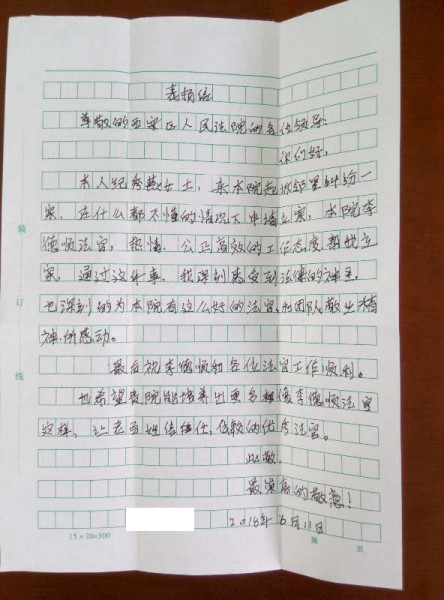 表扬信
尊敬的西梁区人民法院的各位领导:
你们好,
本人纪秀燕女士,来本院起诉邻里纠纷一
案,在什么都不懂的情况下申请立案,本院李
德顺法官,热情、公正高效的工作态度帮我立
案,通过这件事,我深刻感受到法律的神圣,
也深刻的为本院有这么好的法官和团队敬业精
神所感动。
最后祝李德顺和各位法官工作顺利。
也希望贵院能培养出更多像李德顺法官
这样,让老百姓信任,信赖的优秀法官。
此致,
最崇高的敬意!
2018年6月11日
15×20=300
第 页
装
订
线